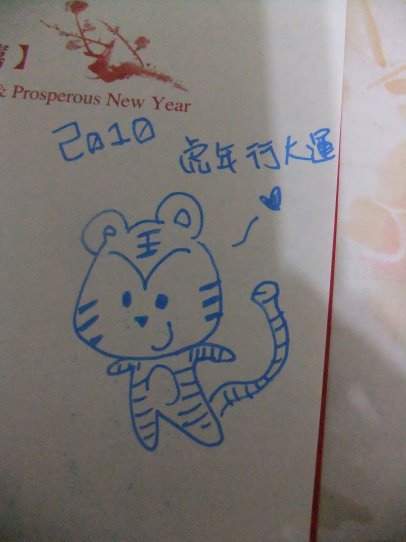 】
& Prosperous New Year
2010
虎年行大運